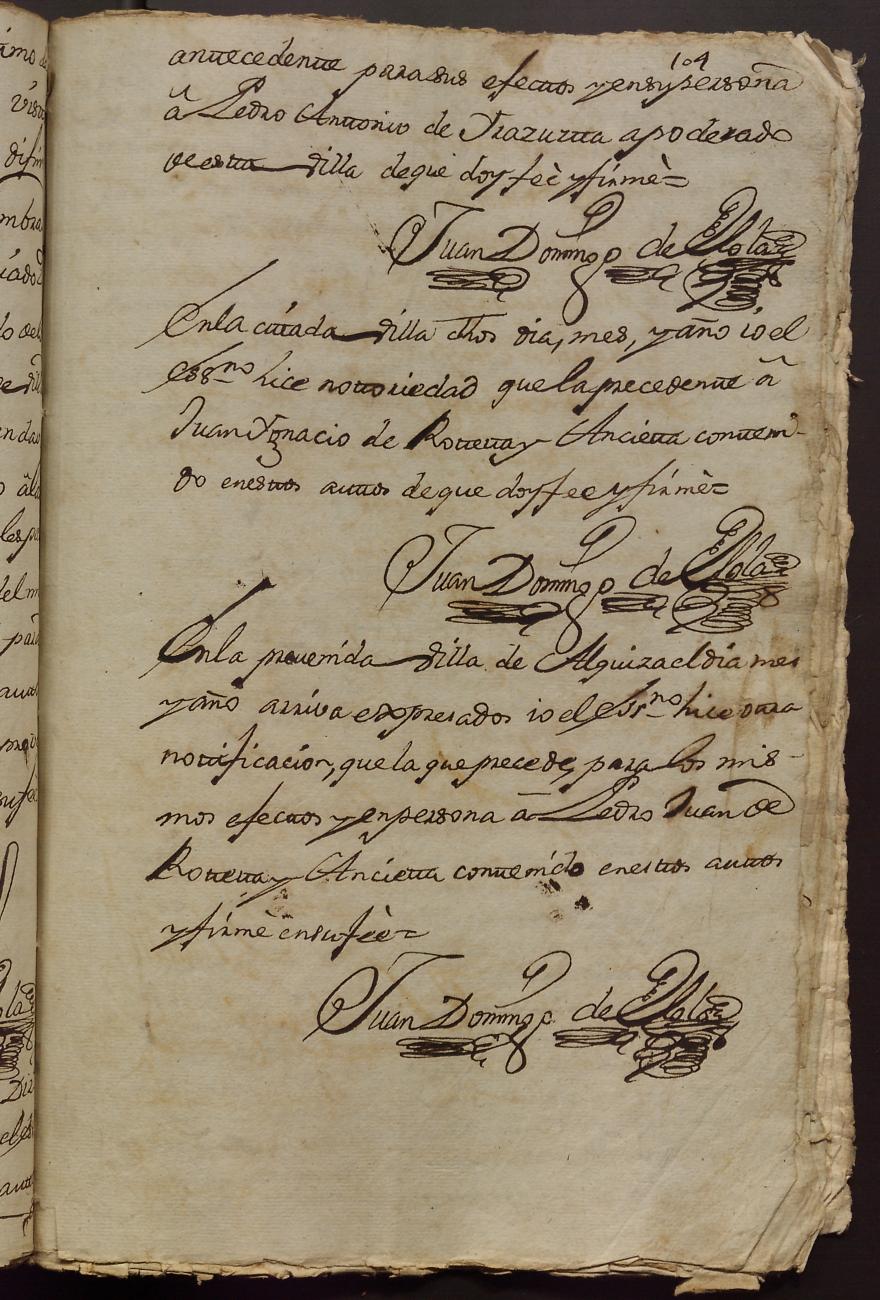 104
anttecedentte para sus efecttos y en su persona
â Pedro Anttonio de Yrazuztta apoderado
de estta Villa de que doy feè y firmè=
Juan Domingo de Ollolaz
En la cittada Villa dhos dia, mes, y año io el
Essno hice nottoriedad que la precedentte â
Juan Ygnacio de Rottetta y Ancietta conttem-
do en esttos auttos de que doy fee y firmè=
Juan Domingo de Ollolaz
En la prevenida Villa de Alquiza el dia mes
y año arriva expresados io el Essno hice ottra
nottificacion, que la que precede, para los mis-
mos efecttos y en persona â Pedro Juan de
Rottetta y Ancietta conttenido en esttos auttos
y firmè en su feè=
Juan Domingo de Ollolaz